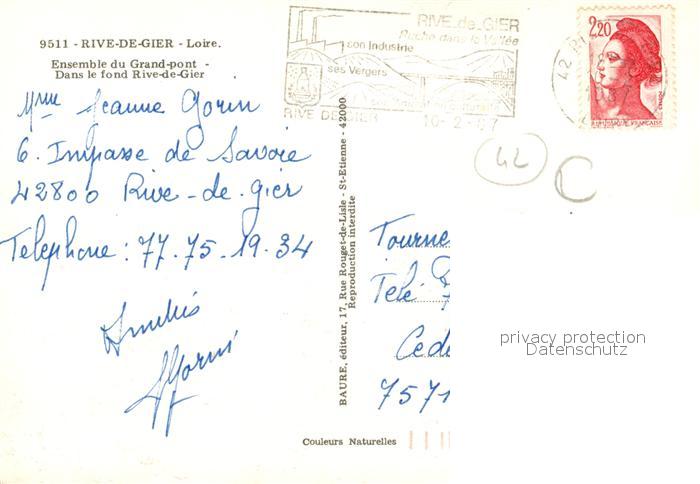 9511 - RIVE-DE-GIER - Loire.
Ensemble du Grand-pont -
Dans le fond Rive-de-Gier
Mme Jeanne Gorin
6. Impasse de Savoie
42800 Rive-de-gier
Telephone: 77.75.19.34
Amitiés
BAURE, éditeur, 17, Rue Rouget-de-Lisle - St-Etienne - 42000
Reproduction interdite
Couleurs Naturelles
RIVE de GIER
Niché dans la Vallée
son Industrie
ses Vergers
RIVE DE GIER 10-2-87
2,20
42
C
Tourne
Télé
Cede
7571
privacy protection
Datenschutz